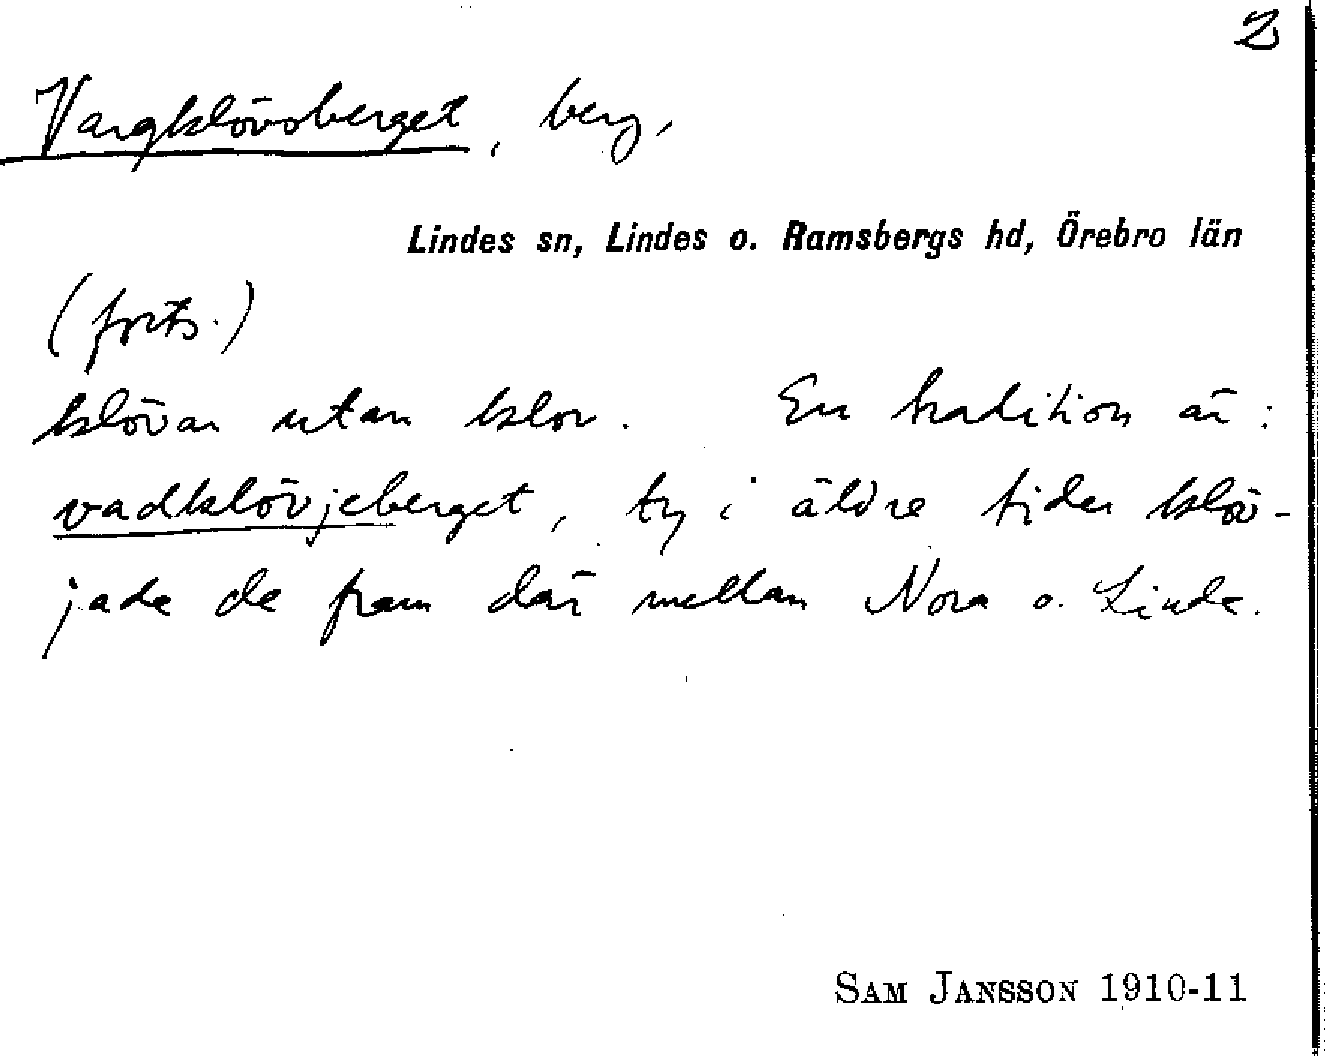 2
Vargklövsberget, berg,
Lindes sn, Lindes o. Ramsbergs hd, Örebro län
(forts.)
klövar utan klor. En tradition är:
vadklövjeberget, ty i äldre tider klöv-
jade de fram där mellan Nora o. Linde.
SAM JANSSON 1910-11